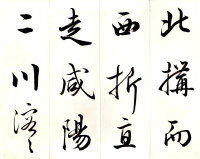 北搆而
西折直
走咸陽
二川溶々